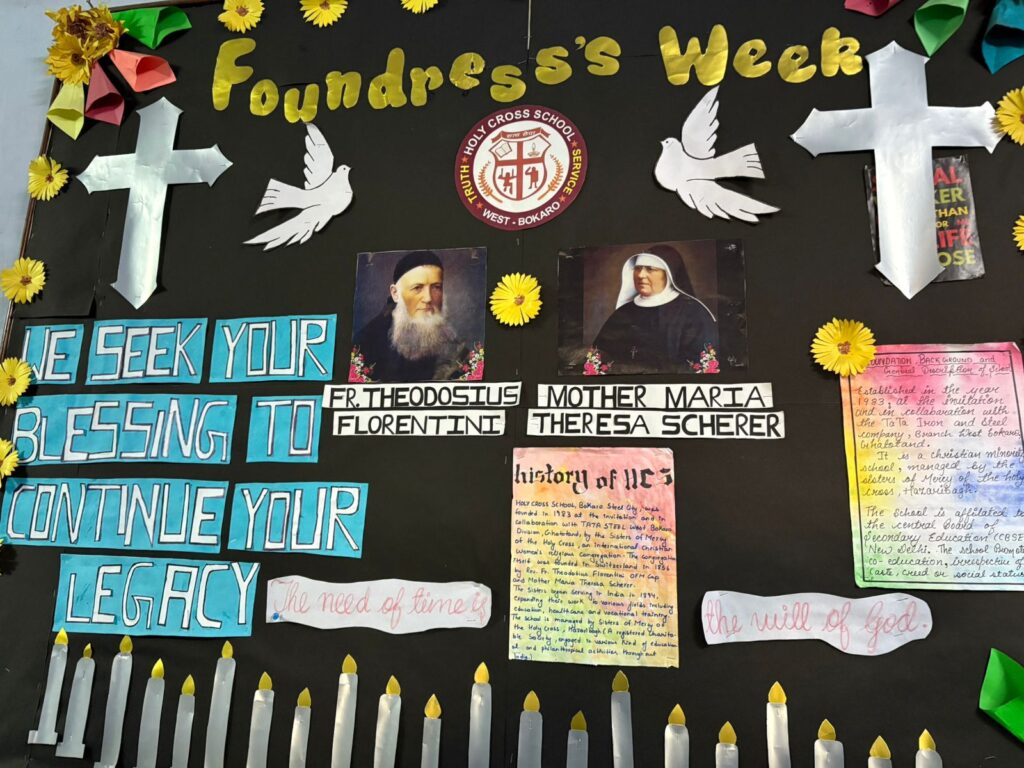 Foundress's Week
HOLY CROSS SCHOOL
TRUTH
SERVICE
WEST-BOKARO
WE SEEK YOUR
BLESSING TO
CONTINUE YOUR
LEGACY
FR. THEODOSIUS
FLORENTINI
MOTHER MARIA
THERESA SCHERER
The need of time is
the will of God.
history of HCS
HOLY CROSS SCHOOL, Bokaro Steel City, was
founded in 1983 at the invitation and in
collaboration with TATA STEEL West Bokaro
Division, Ghatotand, by the Sisters of Mercy
of the Holy Cross, an International Christian
Women's religious congregation. The congregation
itself was founded in Switzerland in 1856
by Rev. Fr. Theodosius Florentini OFM Cap
and Mother Maria Theresa Scherer.
The Sisters began serving in India in 1894,
expanding their work to various fields including
education, healthcare and vocational training.
The school is managed by Sisters of Mercy of
the Holy Cross, Hazaribagh (A registered Charita-
ble Society, engaged in various kind of education
al and philanthropical activities throughout
India)
FOUNDATION, BACKGROUND and
General Description of
Established in the year
1983, at the invitation
and in collaboration with
the TaTa Iron and Steel
company, Branch West Bokaro
Ghatotand.
It is a christian
school, managed by the
sisters of Mercy of the holy
cross, Hazaribagh.
The School is affiliated to
the central Board of
Secondary Education (CBSE
New Delhi. The school
co-education, irrespective of
caste, creed or social status
THAN
OR
LIFE
OSE